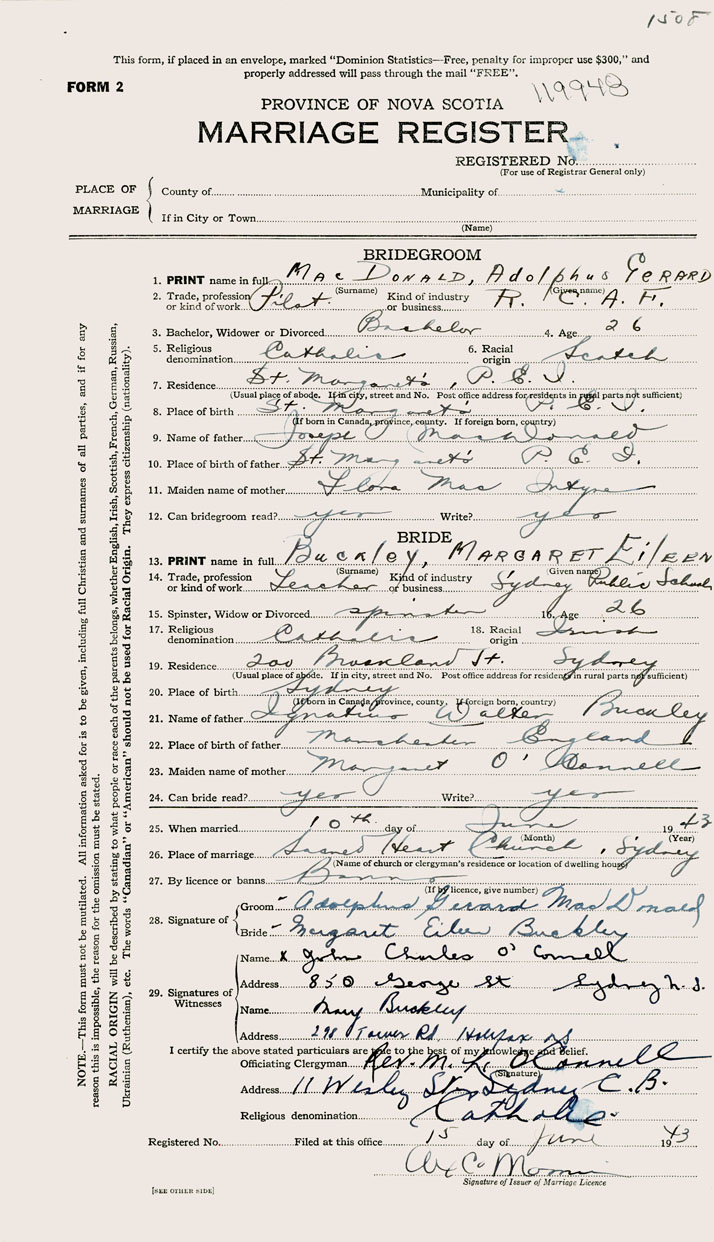 1508
This form, if placed in an envelope, marked "Dominion Statistics—Free, penalty for improper use $300," and
properly addressed will pass through the mail "FREE".
FORM 2
119948
PROVINCE OF NOVA SCOTIA
MARRIAGE REGISTER
REGISTERED No.
(For use of Registrar General only)
PLACE OF MARRIAGE
County of Municipality of
If in City or Town
(Name)
BRIDEGROOM
1. PRINT name in full MacDONALD, Adolphus GERARD
(Surname) (Given name)
2. Trade, profession or kind of work Pilot Kind of industry or business R. C. A. F.
3. Bachelor, Widower or Divorced Bachelor 4. Age 26
5. Religious denomination Catholic 6. Racial origin Scotch
7. Residence St. Margaret's, P. E. I.
(Usual place of abode. If in city, street and No. Post office address for residents in rural parts not sufficient)
8. Place of birth St. Margaret's P. E. I.
(If born in Canada, province, county. If foreign born, country)
9. Name of father Joseph MacDonald
10. Place of birth of father St. Margaret's P. E. I.
11. Maiden name of mother Flora MacIntyre
12. Can bridegroom read? yes Write? yes
BRIDE
13. PRINT name in full BUCKLEY, MARGARET EILEEN
(Surname) (Given name)
14. Trade, profession or kind of work Teacher Kind of industry or business Sydney Public Schools
15. Spinster, Widow or Divorced spinster 16. Age 26
17. Religious denomination Catholic 18. Racial origin Irish
19. Residence 200 St. Sydney
(Usual place of abode. If in city, street and No. Post office address for residents in rural parts not sufficient)
20. Place of birth Sydney
(If born in Canada, province, county. If foreign born, country)
21. Name of father Ignatius Walter Buckley
22. Place of birth of father Manchester England
23. Maiden name of mother Margaret O'Connell
24. Can bride read? yes Write? yes
25. When married 10th day of June 1943
(Month) (Year)
26. Place of marriage Sacred Heart Church, Sydney
(Name of church or clergyman's residence or location of dwelling house)
27. By licence or banns Banns
(If by licence, give number)
28. Signature of
Groom - Adolphus Gerard MacDonald
Bride - Margaret Eileen Buckley
29. Signatures of Witnesses
Name x John Charles O'Connell
Address 850 George St Sydney N.S.
Name Mary Buckley
Address 298 Tower Rd. Halifax NS
I certify the above stated particulars are true to the best of my knowledge and belief.
Officiating Clergyman Rev. M. O'Connell
(Signature)
Address 11 Wesley St., Sydney C.B.
Religious denomination Catholic
Registered No. Filed at this office 15 day of June 1943
Signature of Issuer of Marriage Licence
[SEE OTHER SIDE]
NOTE.—This form must not be mutilated. All information asked for is to be given, including full Christian and surnames of all parties, and if for any
reason this is impossible, the reason for the omission must be stated.
RACIAL ORIGIN will be described by stating to what people or race each of the parents belongs, whether English, Irish, Scottish, French, German, Russian,
Ukrainian (Ruthenian), etc. The words "Canadian" or "American" should not be used for Racial Origin. They express citizenship (nationality).